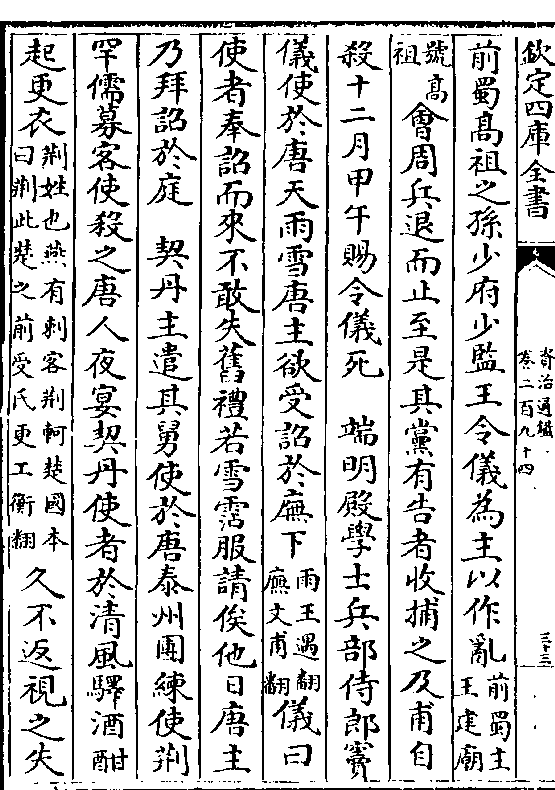 欽定四庫全書
資治通鑑
卷二百九十四
三十三
前蜀高祖之孫少府少監王令儀為主以作亂前蜀主王建廟
號高祖會周兵退而止至是其黨有告者收捕之及甫自
殺十二月甲午賜令儀死 端明殿學士兵部侍郎竇
儀使於唐天雨雪唐主欲受詔於廡下雨王遇翻廡文甫翻儀曰
使者奉詔而來不敢失舊禮若雪霑服請俟他日唐主
乃拜詔於庭 契丹主遣其舅使於唐泰州團練使荆
罕儒募客使殺之唐人夜宴契丹使者於清風驛酒酣
起更衣荆姓也燕有刺客荆軻楚國本曰荆此楚之前受氏更工衡翻久不返視之失